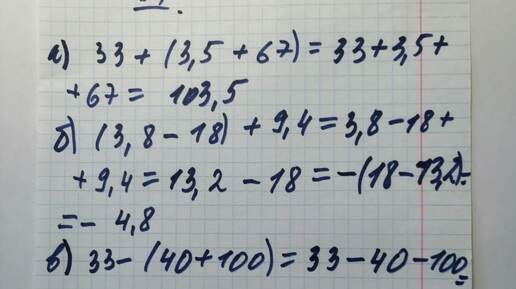 а) 33 + (3,5 + 67) = 33 + 3,5 +
+ 67 = 103,5
б) (3,8 - 18) + 9,4 = 3,8 - 18 +
+ 9,4 = 13,2 - 18 = -(18 - 13,2) =
= - 4,8
в) 33 - (40 + 100) = 33 - 40 - 100 =